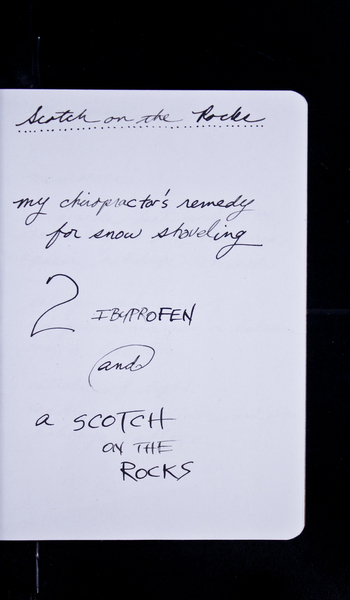 Scotch on the Rocks
my chiropractor's remedy
for snow shoveling
2 IBUPROFEN
and
a SCOTCH
ON THE
ROCKS